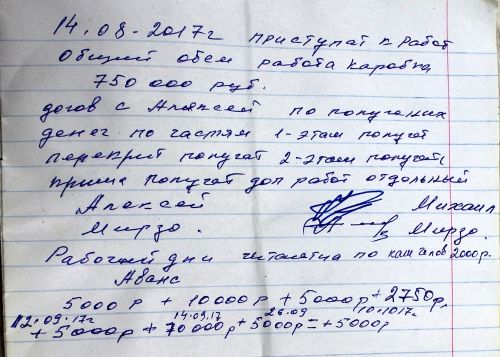 14.08-2017г приступат к работ
Общий обем работа каробка
750 000 руб.
догов с Аляксей по получених
денег по частям 1-этам получат
перекрит получат 2-этам получать
крыша получат доп работ отдельный
Алексей Михаил
Мирзо. Мирзо.
Рабочий дни читаетца по кажд челов 2000р.
Аванс
5000р + 10000р + 5000р + 2750р,
12.09.17г 14.09.17 26.09 10.1017г
+ 5000р + 70000р + 5000р = + 5000р